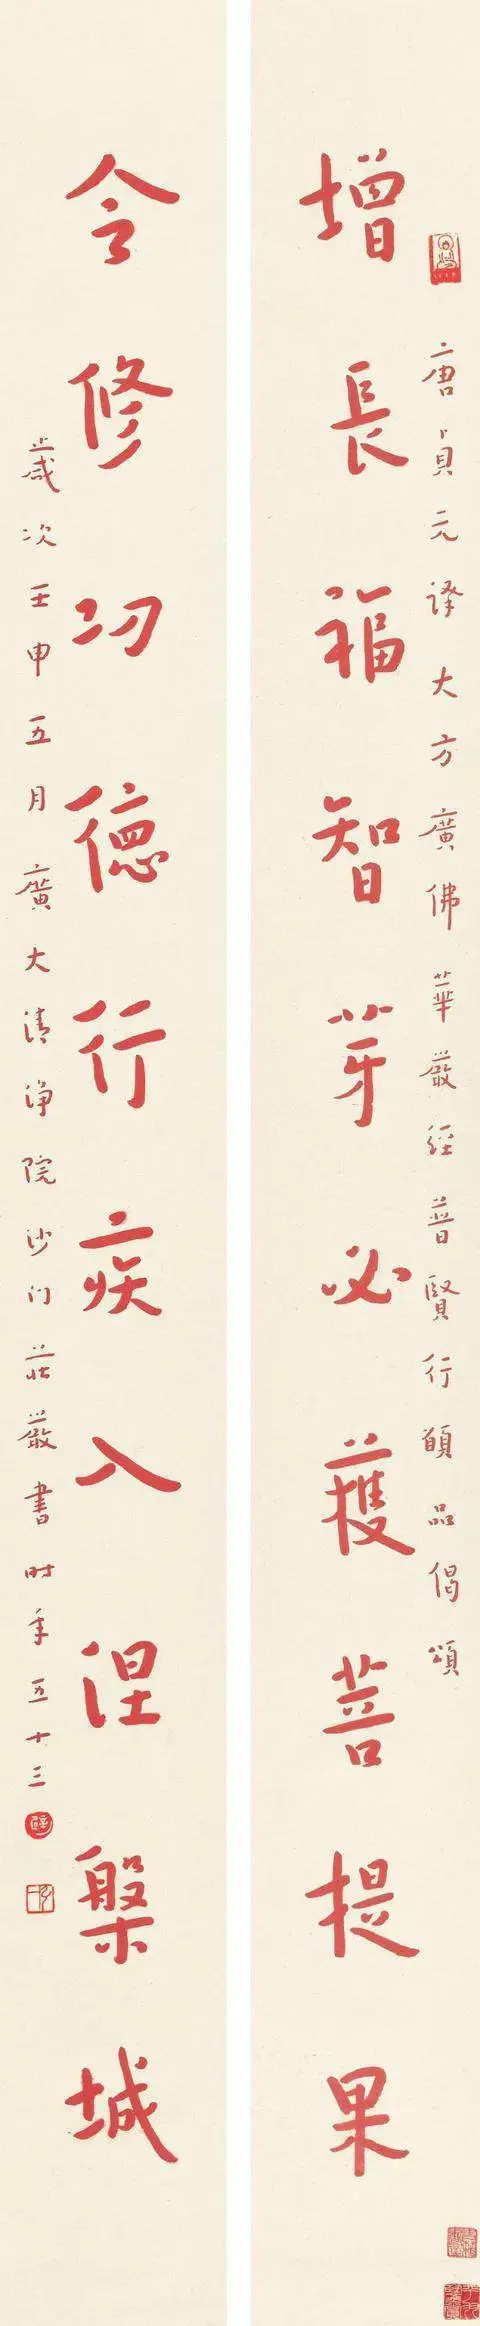 唐貞元譯大方廣佛華嚴經普賢行願品偈頌
增長福智芽必獲菩提果
令修功德行疾入涅槃城
歲次壬申五月廣大清淨院沙門莊嚴書時年五十三